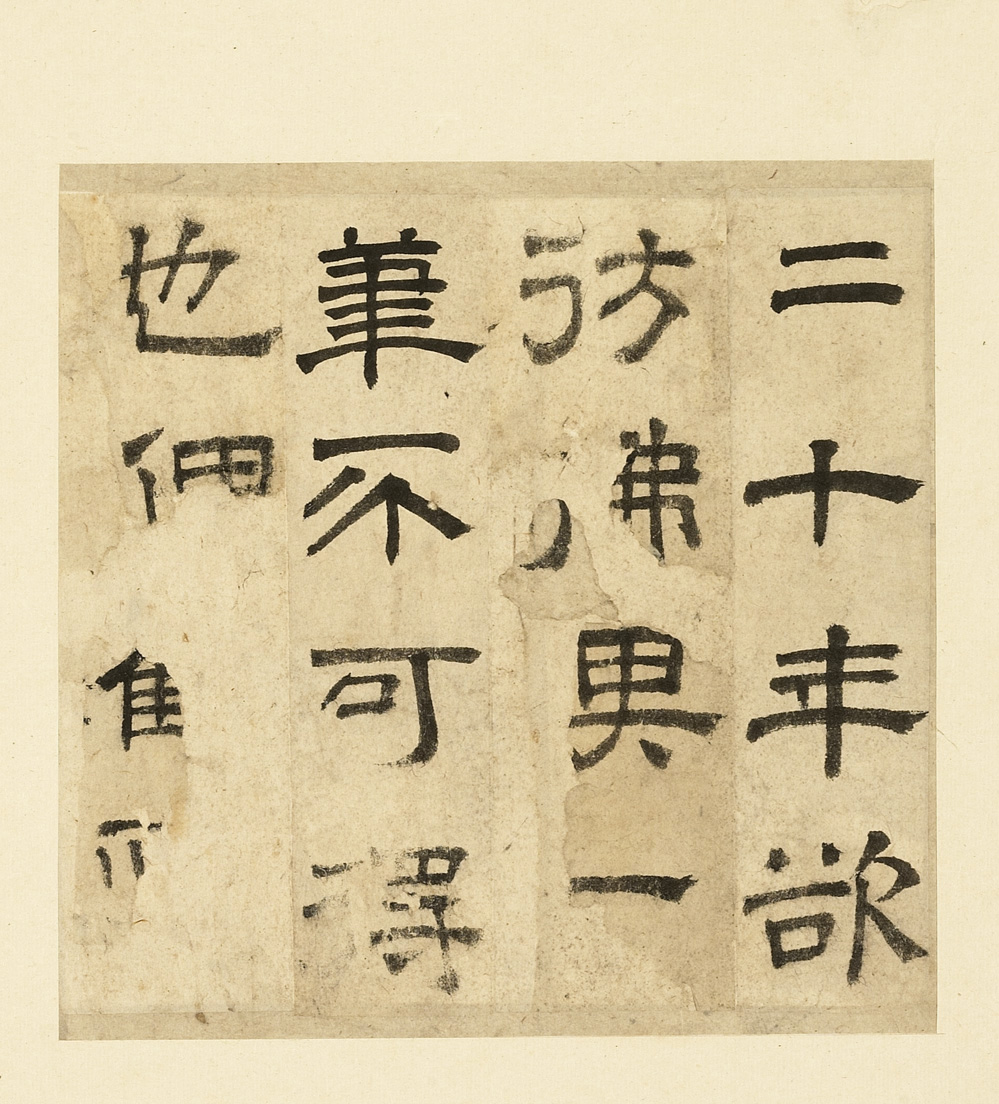 二十年欲
彷彿其一
筆不可得
也